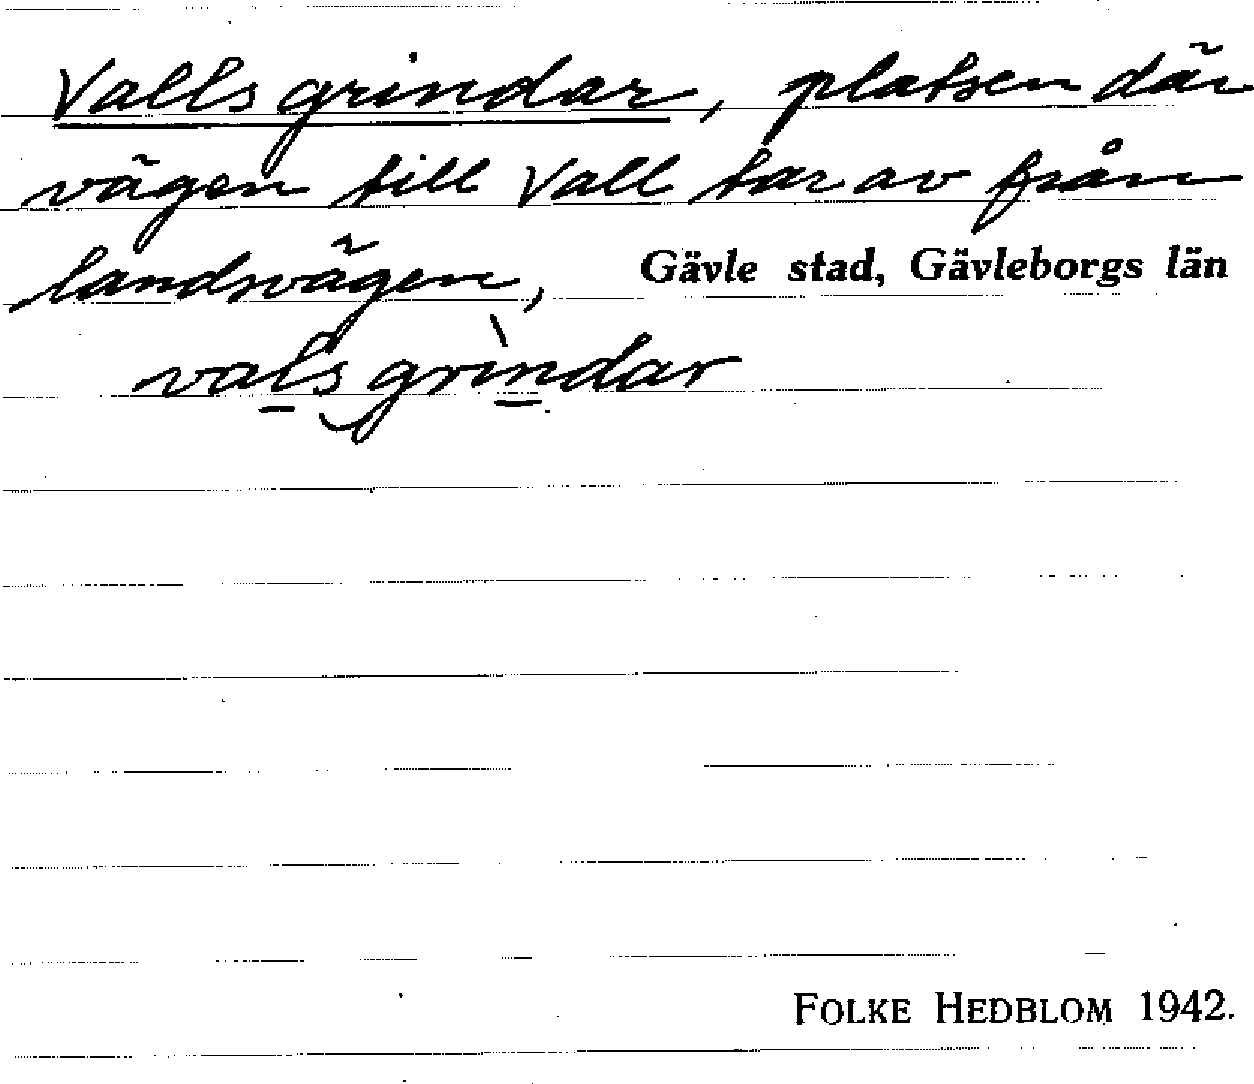 Valls grindar, platsen där
vägen till Vall tar av från
landsvägen, Gävle stad, Gävleborgs län
vals grìndar
FOLKE HEDBLOM 1942.